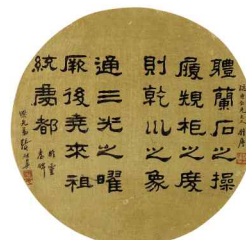 體蘭石之操
履規柜之度
則乾川之象
通三光之曜
厥後堯來祖
統慶都